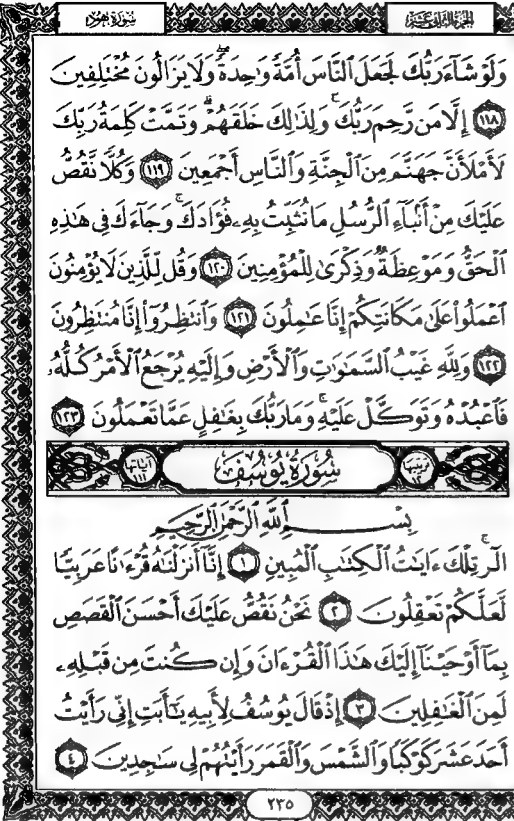 سُورَةُ هُودٍ
الجزء الثاني عشر
وَلَوْ شَآءَ رَبُّكَ لَجَعَلَ ٱلنَّاسَ أُمَّةً وَٰحِدَةً ۖ وَلَا يَزَالُونَ مُخْتَلِفِينَ
١١٨ إِلَّا مَن رَّحِمَ رَبُّكَ ۚ وَلِذَٰلِكَ خَلَقَهُمْ ۗ وَتَمَّتْ كَلِمَةُ رَبِّكَ
لَأَمْلَأَنَّ جَهَنَّمَ مِنَ ٱلْجِنَّةِ وَٱلنَّاسِ أَجْمَعِينَ ١١٩ وَكُلًّا نَّقُصُّ
عَلَيْكَ مِنْ أَنۢبَآءِ ٱلرُّسُلِ مَا نُثَبِّتُ بِهِۦ فُؤَادَكَ ۚ وَجَآءَكَ فِى هَٰذِهِ
ٱلْحَقُّ وَمَوْعِظَةٌ وَذِكْرَىٰ لِلْمُؤْمِنِينَ ١٢٠ وَقُل لِّلَّذِينَ لَا يُؤْمِنُونَ
ٱعْمَلُوا۟ عَلَىٰ مَكَانَتِكُمْ إِنَّا عَٰمِلُونَ ١٢١ وَٱنتَظِرُوٓا۟ إِنَّا مُنتَظِرُونَ
١٢٢ وَلِلَّهِ غَيْبُ ٱلسَّمَٰوَٰتِ وَٱلْأَرْضِ وَإِلَيْهِ يُرْجَعُ ٱلْأَمْرُ كُلُّهُۥ
فَٱعْبُدْهُ وَتَوَكَّلْ عَلَيْهِ ۚ وَمَا رَبُّكَ بِغَٰفِلٍ عَمَّا تَعْمَلُونَ ١٢٣
ترتيبها ١٢ سُورَةُ يُوسُفَ آياتها ١١١
بِسْمِ ٱللَّهِ ٱلرَّحْمَٰنِ ٱلرَّحِيمِ
الٓر ۚ تِلْكَ ءَايَٰتُ ٱلْكِتَٰبِ ٱلْمُبِينِ ١ إِنَّآ أَنزَلْنَٰهُ قُرْءَٰنًا عَرَبِيًّا
لَّعَلَّكُمْ تَعْقِلُونَ ٢ نَحْنُ نَقُصُّ عَلَيْكَ أَحْسَنَ ٱلْقَصَصِ
بِمَآ أَوْحَيْنَآ إِلَيْكَ هَٰذَا ٱلْقُرْءَانَ وَإِن كُنتَ مِن قَبْلِهِۦ
لَمِنَ ٱلْغَٰفِلِينَ ٣ إِذْ قَالَ يُوسُفُ لِأَبِيهِ يَٰٓأَبَتِ إِنِّى رَأَيْتُ
أَحَدَ عَشَرَ كَوْكَبًا وَٱلشَّمْسَ وَٱلْقَمَرَ رَأَيْتُهُمْ لِى سَٰجِدِينَ ٤
٢٣٥